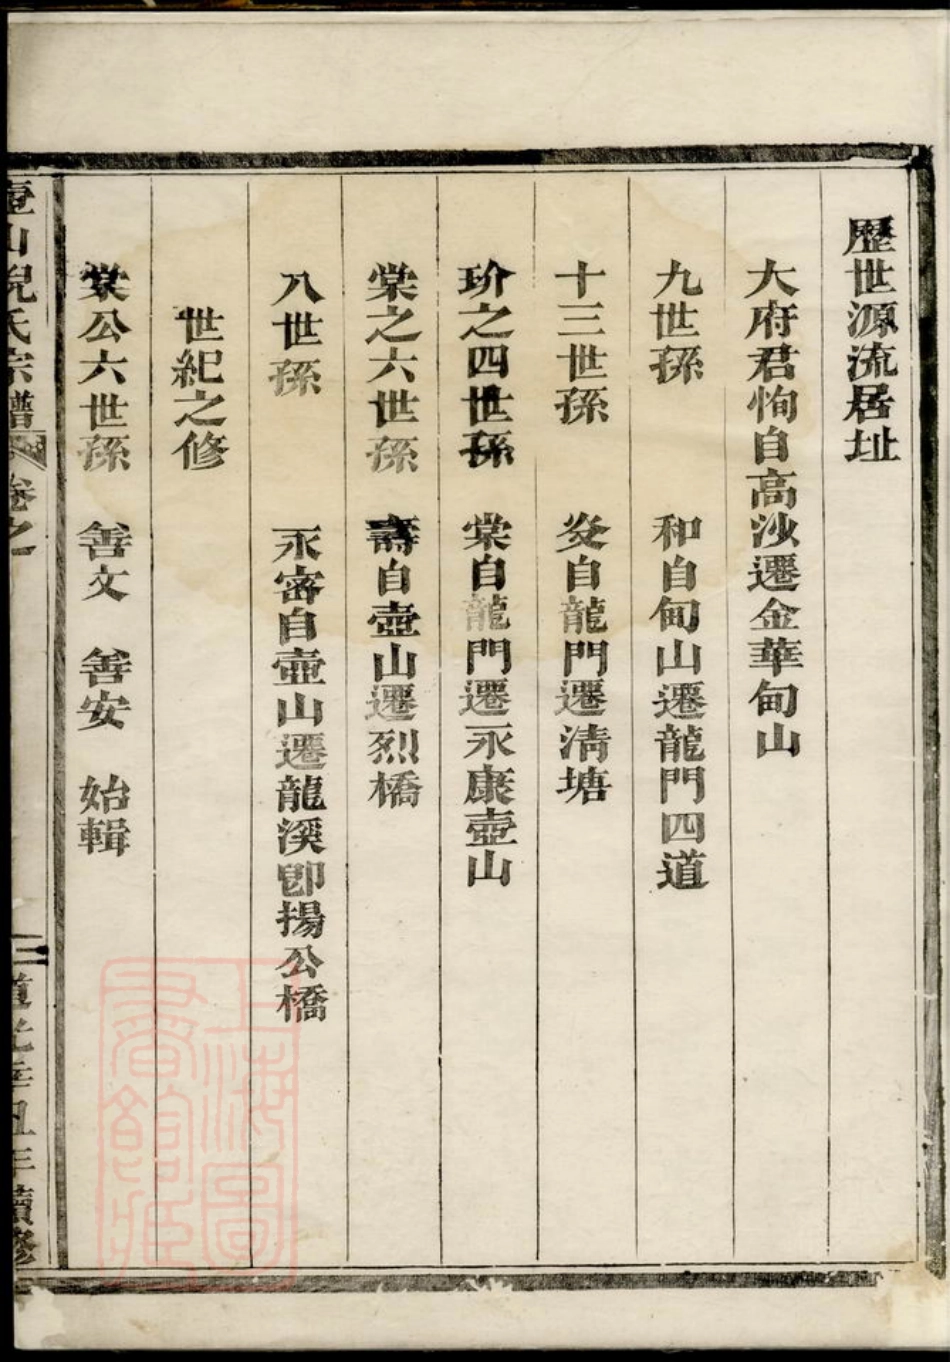 歷世源流居址
大府君恂自高沙遷金華甸山
九世孫 和自甸山遷龍門四道
十三世孫 炎自龍門遷淸塘
玠之四世孫 棠自龍門遷永康壺山
棠之六世孫 壽自壺山遷烈橋
八世孫 永密自壺山遷龍溪卽揚公橋
世紀之修
棠公六世孫 善文 善安 始輯
壺山倪氏宗譜 卷之一 道光辛丑年續修
上海圖書館藏